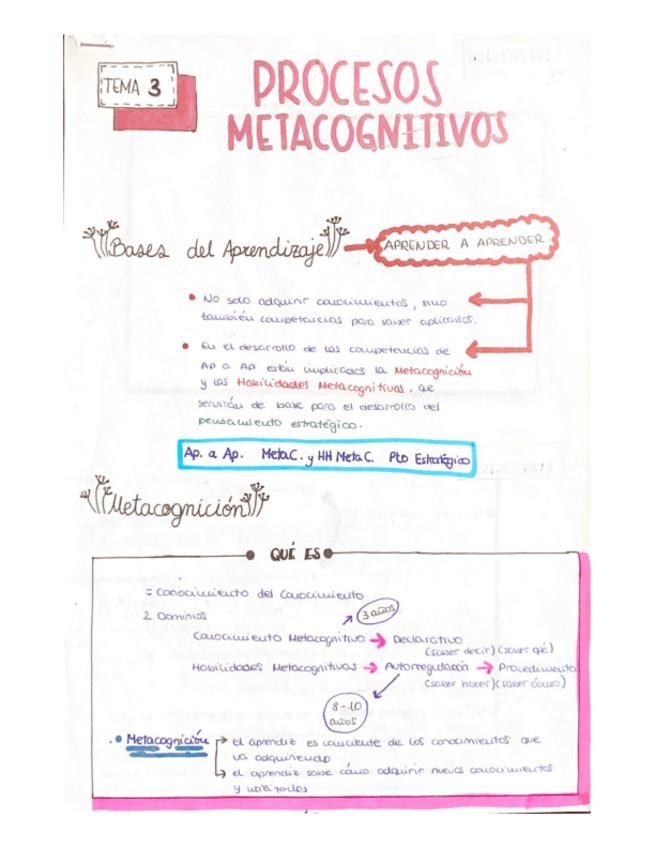 TEMA 3
PROCESOS
METACOGNITIVOS
Bases del Aprendizaje
APRENDER A APRENDER
• No solo adquirir conocimientos, sino
también competencias para saber aplicarlos.
• En el desarrollo de las competencias de
Ap a Ap están implicados la Metacognición
y las Habilidades Metacognitivas, que
servirán de base para el desarrollo del
pensamiento estratégico.
Ap. a Ap. MetaC. y HH MetaC. Pto Estratégico
Metacognición
QUÉ ES
= Conocimiento del Conocimiento
2 Dominios
3 años
Conocimiento Metacognitivo → Declarativo
(saber decir) (saber qué)
Habilidades Metacognitivas → Autorregulación → Procedimental
(saber hacer) (saber cómo)
8-10
años
• Metacognición → el aprendiz es consciente de los conocimientos que
va adquiriendo
→ el aprendiz sabe cómo adquirir nuevos conocimientos
y utilizarlos